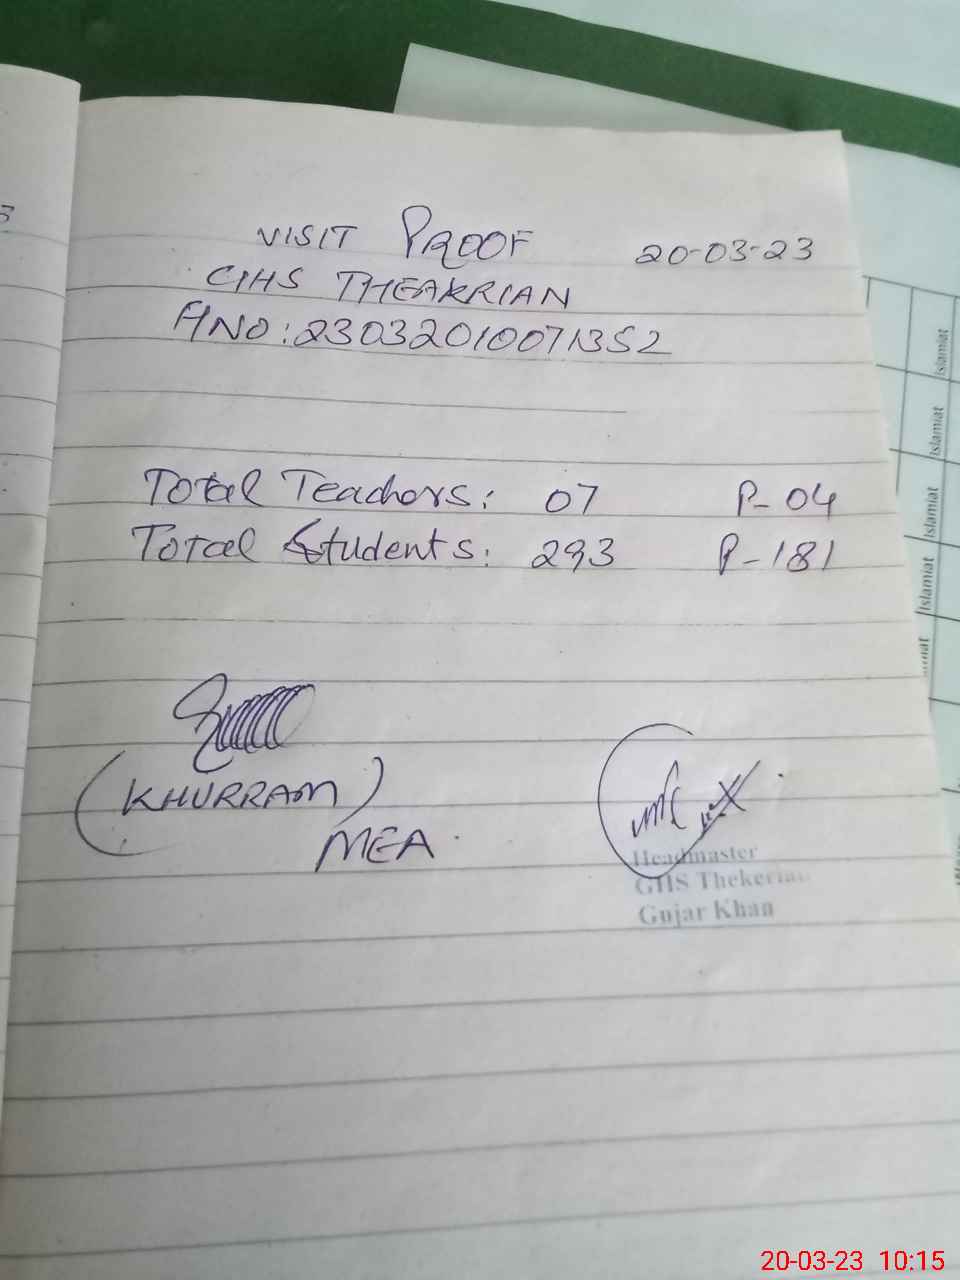 VISIT PROOF 20-03-23
GHS THEAKRIAN
ANO: 23032010071352
Total Teachers: 07 P-04
Total Students: 293 P-181
(KHURRAM)
MEA
Headmaster
GHS Thekerian
Gujar Khan
Islamiat
Islamiat
Islamiat
Islamiat
Islamiat
20-03-23 10:15